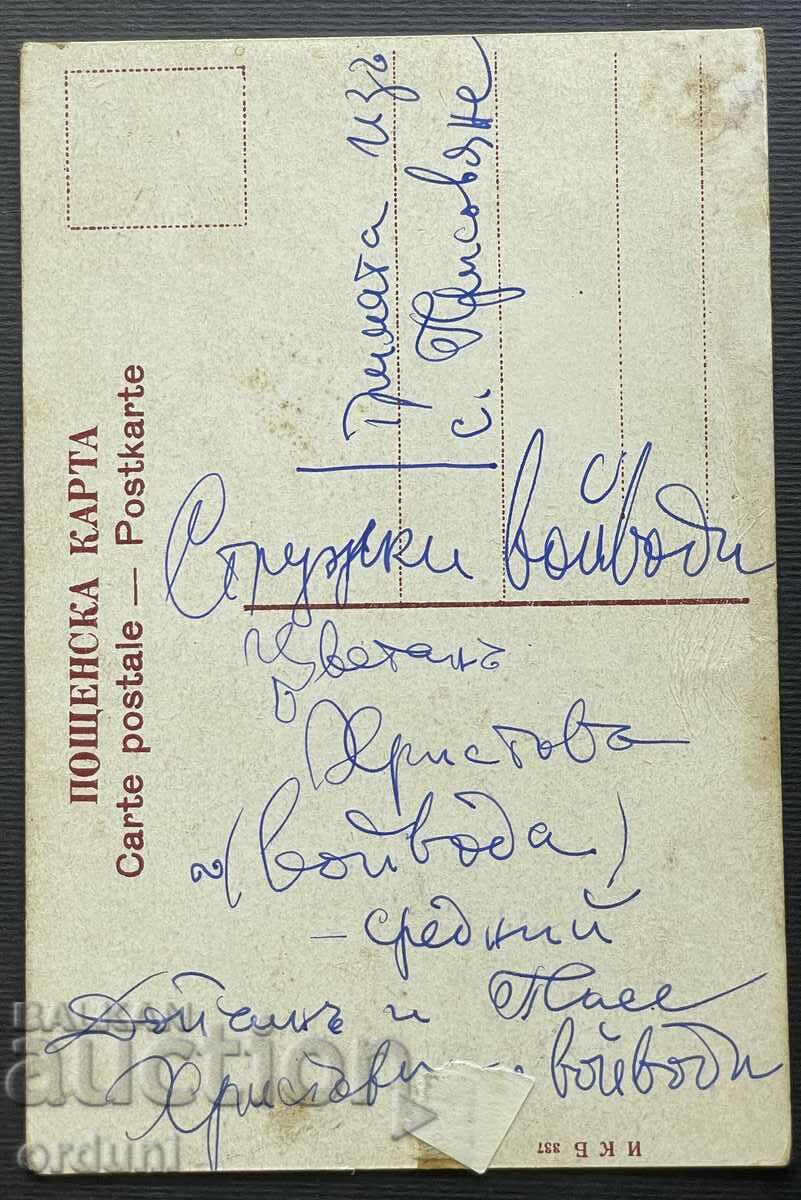 ПОЩЕНСКА КАРТА
Carte postale — Postkarte
Тримата изъ
с. Присовяне
Стружки войводи
Цветанъ
Христовъ
(войвода)
- средний
и Тасе
Христови - войводи
И К Б 337
BALKAN
auction
orduni